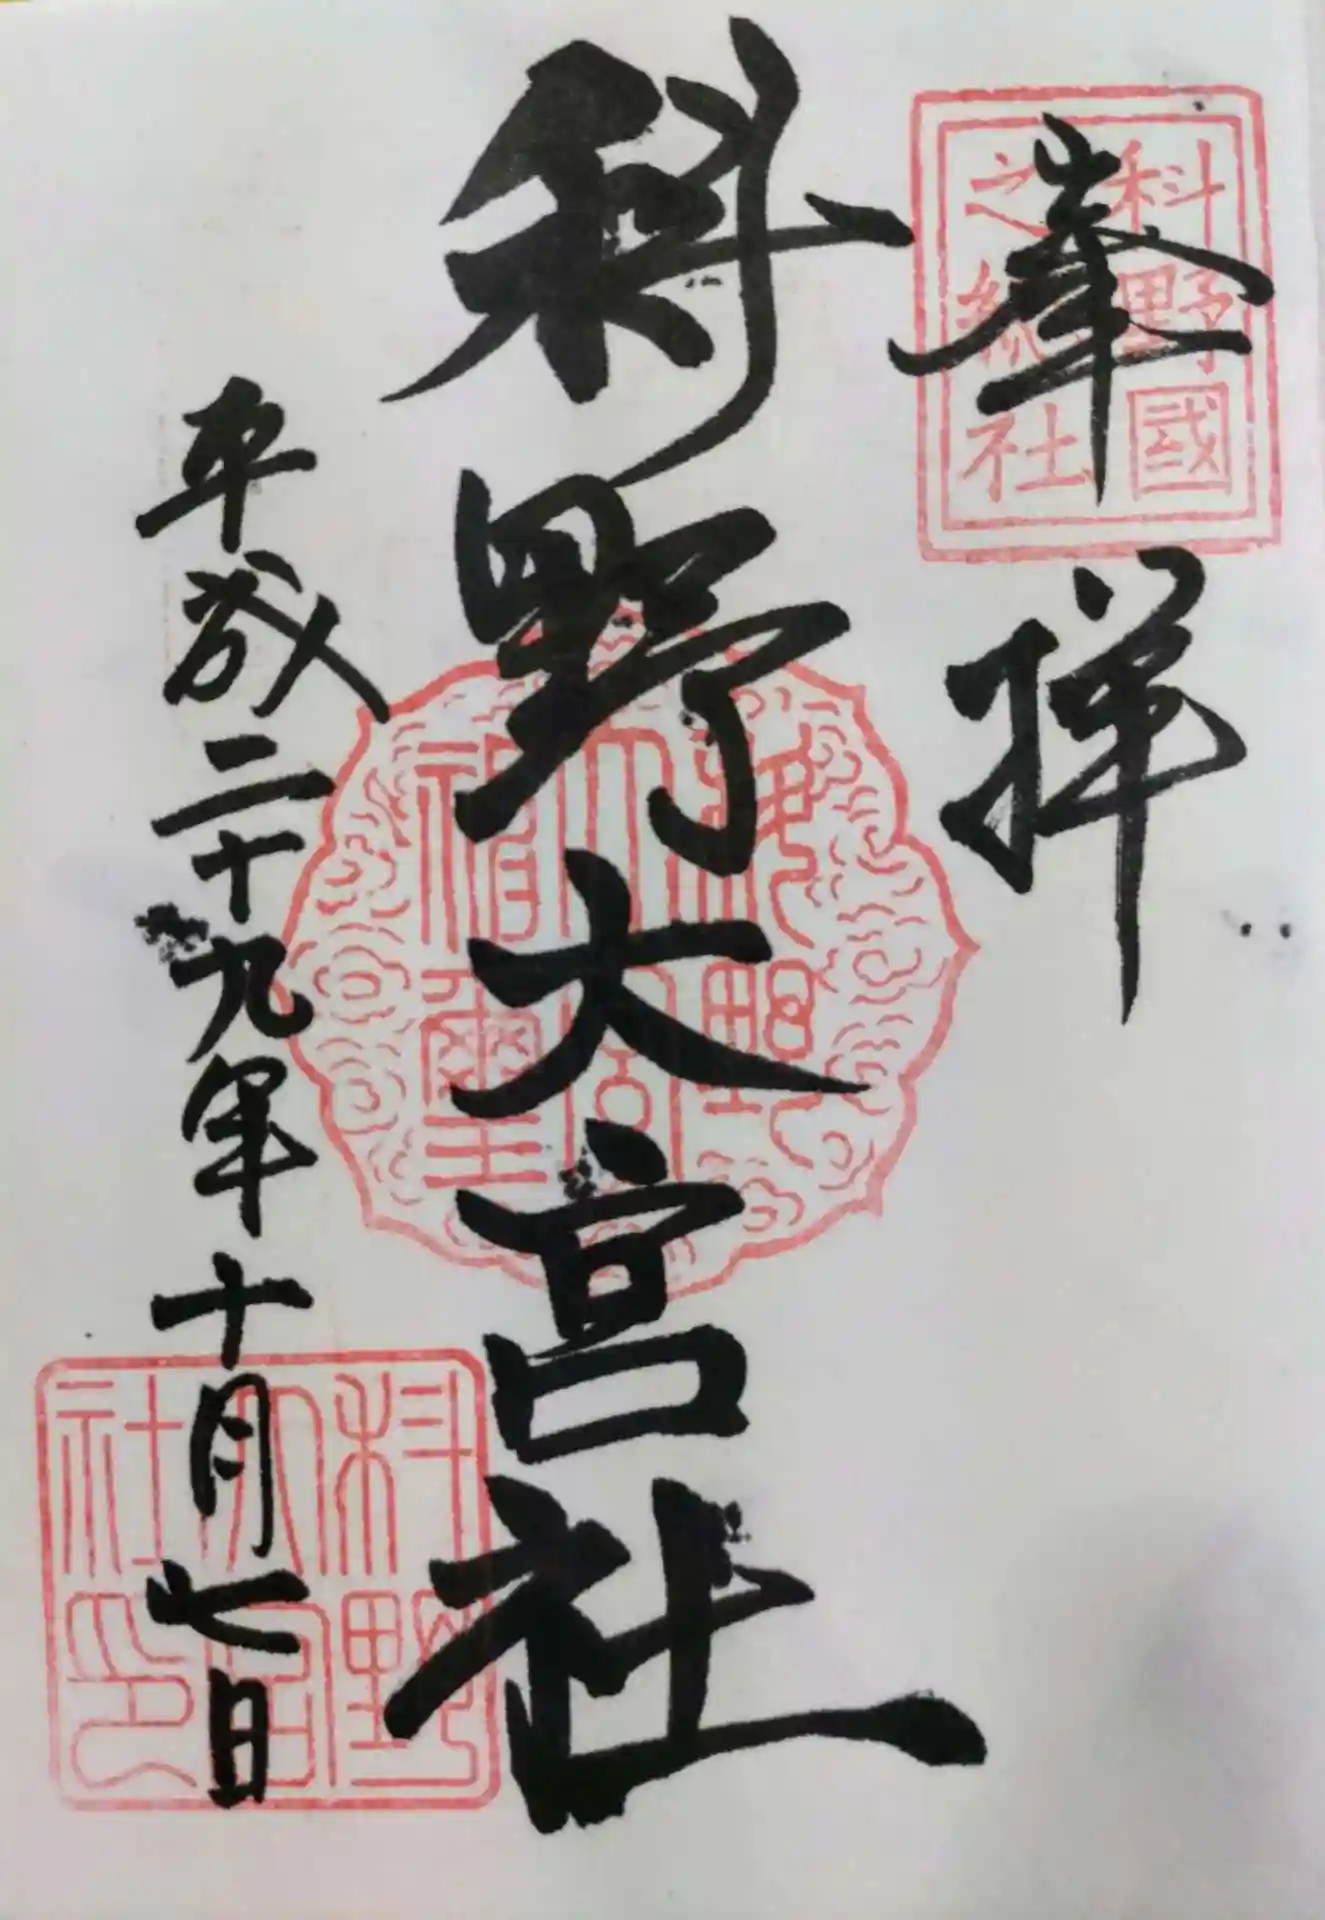 奉拝
科野國
之総社
科野大宮社
科野
大宮
璽
平成二十九年十月七日
科野
大宮
社印